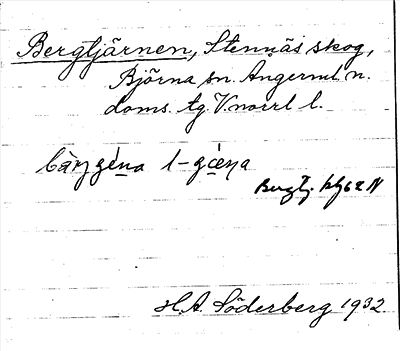 Bergtjärnen, Stennäs skog,
Björna sn. Ångerml. n.
doms. tg. V.norrl l.
bàŋgéna l-géna
Bergtj.
H.A. Söderberg 1932